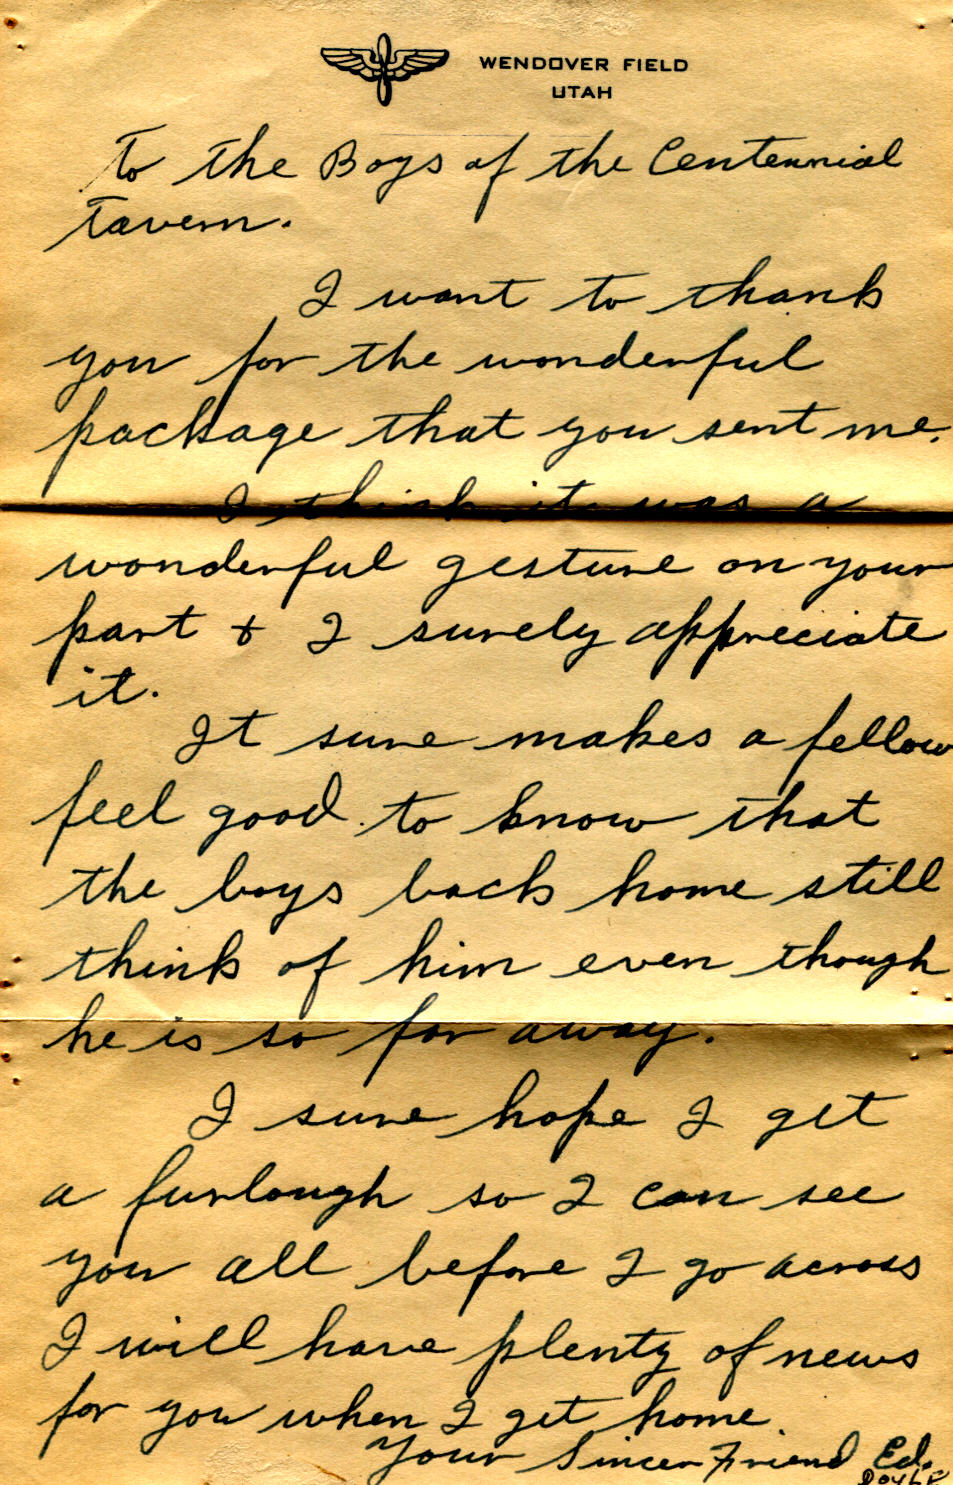 WENDOVER FIELD
UTAH
To the Boys of the Centennial
Tavern.
I want to thank
you for the wonderful
package that you sent me.
I think it was a
wonderful gesture on your
part + I surely appreciate
it.
It sure makes a fellow
feel good to know that
the boys back home still
think of him even though
he is so far away.
I sure hope I get
a furlough so I can see
you all before I go across
I will have plenty of news
for you when I get home.
Your Sincer Friend Ed.
DOYLE